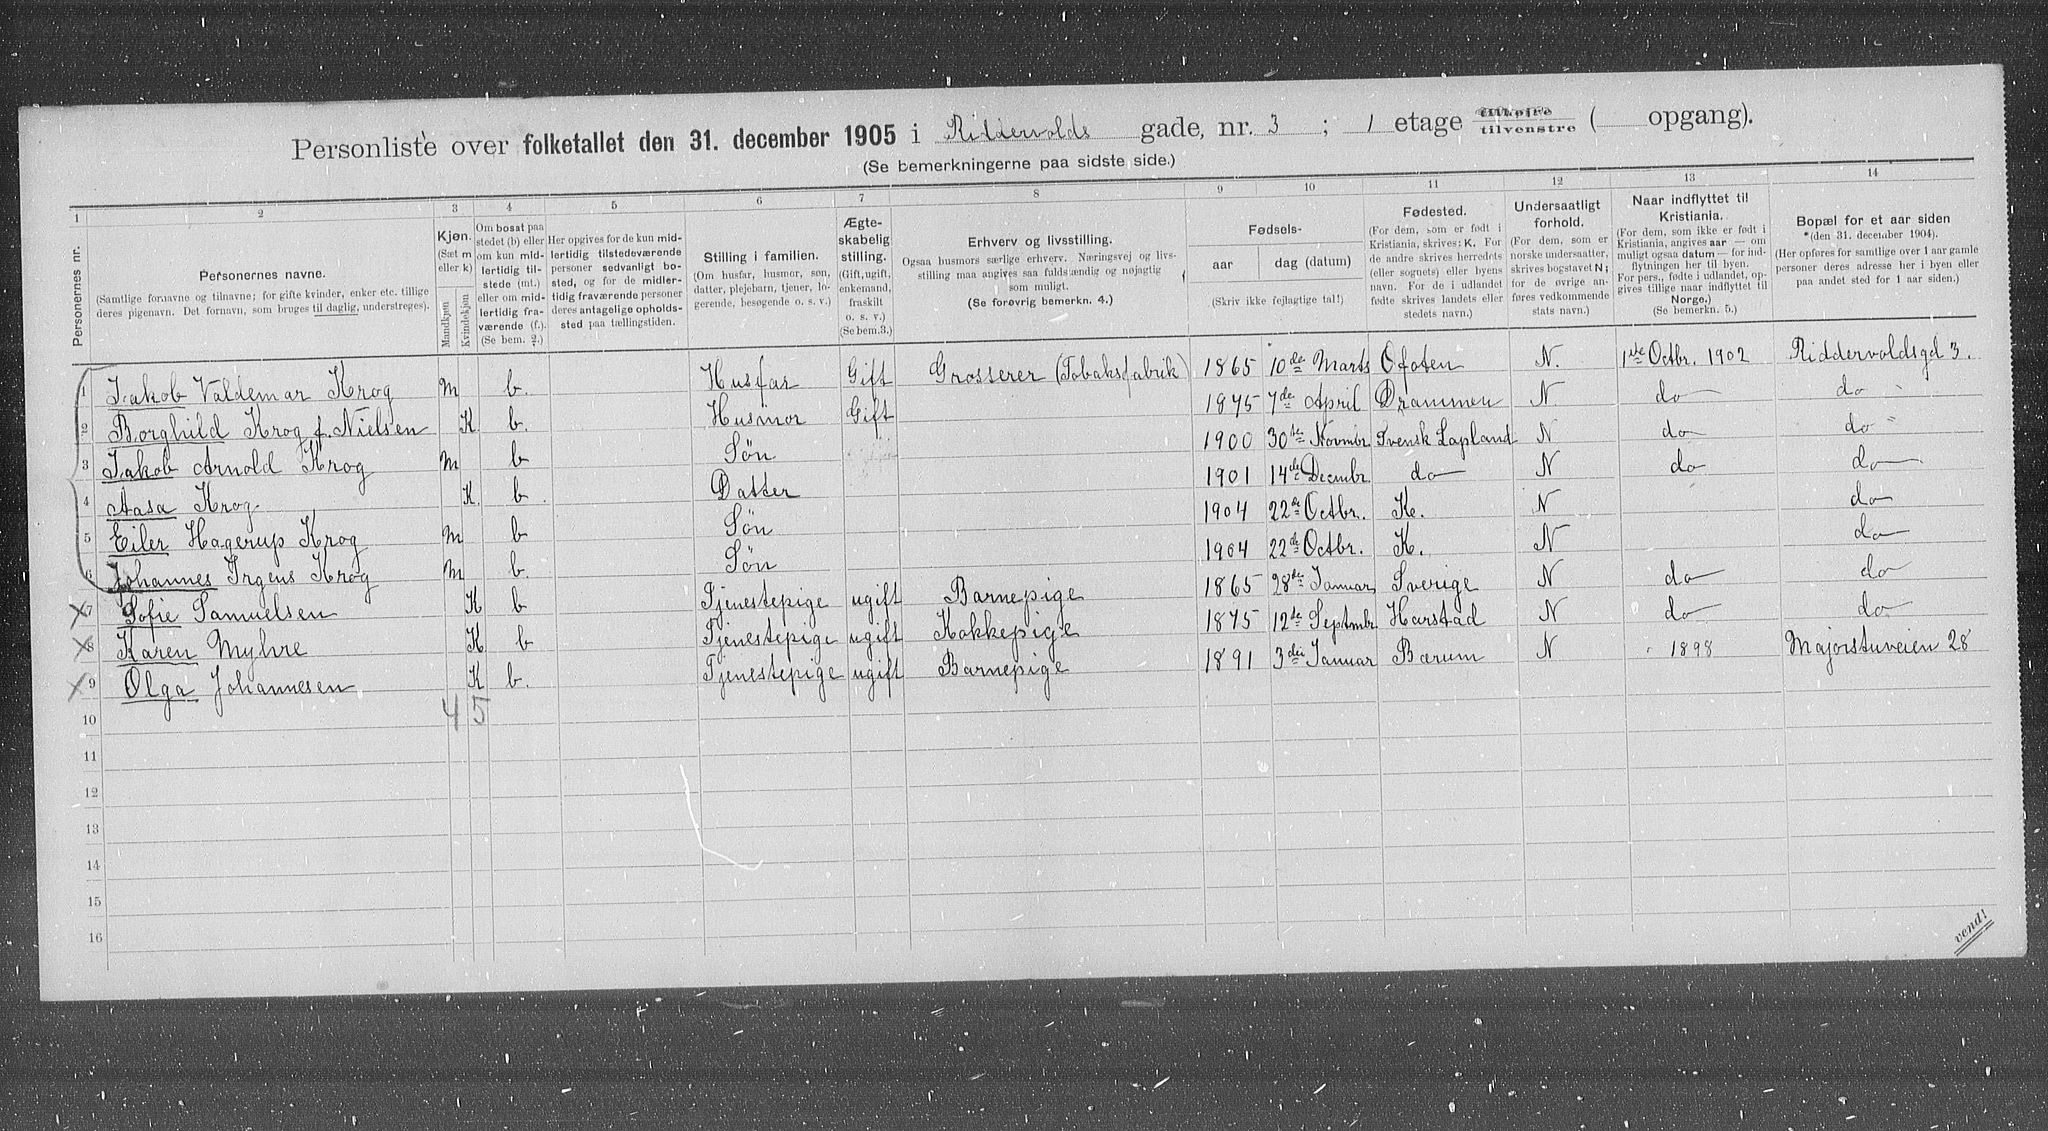 Personliste over folketallet den 31. december 1905 i Riddervolds gade, nr. 3 ; 1 etage tilhøire tilvenstre ( opgang).
(Se bemerkningerne paa sidste side.)
1 2 3 4 5 6 7 8 9 10 11 12 13 14
Personernes nr.
Personernes navne.
(Samtlige fornavne og tilnavne; for gifte kvinder, enker etc. tillige deres pigenavn. Det fornavn, som bruges til daglig, understreges).
Kjøn.
(Sæt m eller k)
Mandkjøn
Kvindekjøn
Om bosat paa stedet (b) eller om kun midlertidig tilstede (mt.) eller om midlertidig fraværende (f.).
(Se bem. 2.)
Her opgives for de kun midlertidig tilstedeværende personer sedvanligt bosted, og for de midlertidig fraværende personer deres antagelige opholdssted paa tællingstiden.
Stilling i familien.
(Om husfar, husmor, søn, datter, plejebarn, tjener, logerende, besøgende o. s. v.)
Ægteskabelig stilling.
(Gift, ugift, enkemand, fraskilt o. s. v.)
(Se bem.3.)
Erhverv og livsstilling.
Ogsaa husmors særlige erhverv. Næringsvej og livsstilling maa angives saa fuldstændig og nøjagtig som muligt.
(Se forøvrig bemerkn. 4.)
Fødsels-
aar
dag (datum)
(Skriv ikke fejlagtige tal!)
Fødested.
(For dem, som er født i Kristiania, skrives: K. For de andre skrives herredets (eller sognets) eller byens navn. For de i udlandet fødte skrives landets eller stedets navn.)
Undersaatligt forhold.
(For dem, som er norske undersaatter, skrives bogstavet N; for de øvrige anføres vedkommende stats navn.)
Naar indflyttet til Kristiania.
(For dem, som ikke er født i Kristiania, angives aar — om muligt ogsaa datum — for indflytningen her til byen. For pers., fødte i udlandet, opgives tillige naar indflyttet til Norge.)
(Se bemerkn. 5.)
Bopæl for et aar siden
*(den 31. december 1904).
(Her opføres for samtlige over 1 aar gamle personer deres adresse her i byen eller paa andet sted for 1 aar siden.)
1 Jakob Valdemar Krog m b. Husfar Gift Grosserer (Tobaksfabrik) 1865 10de Marts Ofoten N. 1ste Octbr. 1902 Riddervoldsgd 3.
2 Borghild Krog f. Nielsen K b. Husmor Gift 1875 7de April Drammen N do do
3 Jakob Arnold Krog m b Søn 1900 30te Novmbr Svensk Lapland N do do
4 Aasa Krog. K. b Datter 1901 14de Decmbr do N do do
5 Eiler Hagerup Krog m b Søn 1904 22de Octbr. K. N do
6 Johannes Irgens Krog m b. Søn 1904 22de Octbr. K. N do
7 Sofie Samuelsen K b Tjenestepige ugift Barnepige 1865 28de Januar Sverige N do do
8 Karen Myhre K b Tjenestepige ugift Kokkepige 1875 12te Septmbr Harstad N do do
9 Olga Johannesen K b. Tjenestepige ugift Barnepige 1891 3die Januar Bærum N 1898 Majorstuveien 28
10 4 5
11
12
13
14
15
16
vend!